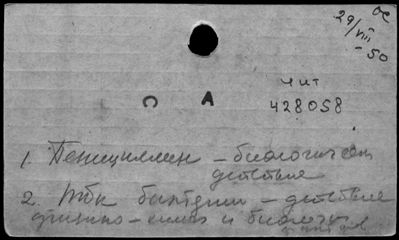 ос
29/VIII-50
чит
С А
428058
1. Пенициллин – биологическ
действие
2. Тбк бактерии – действие
физико-хими и биологич